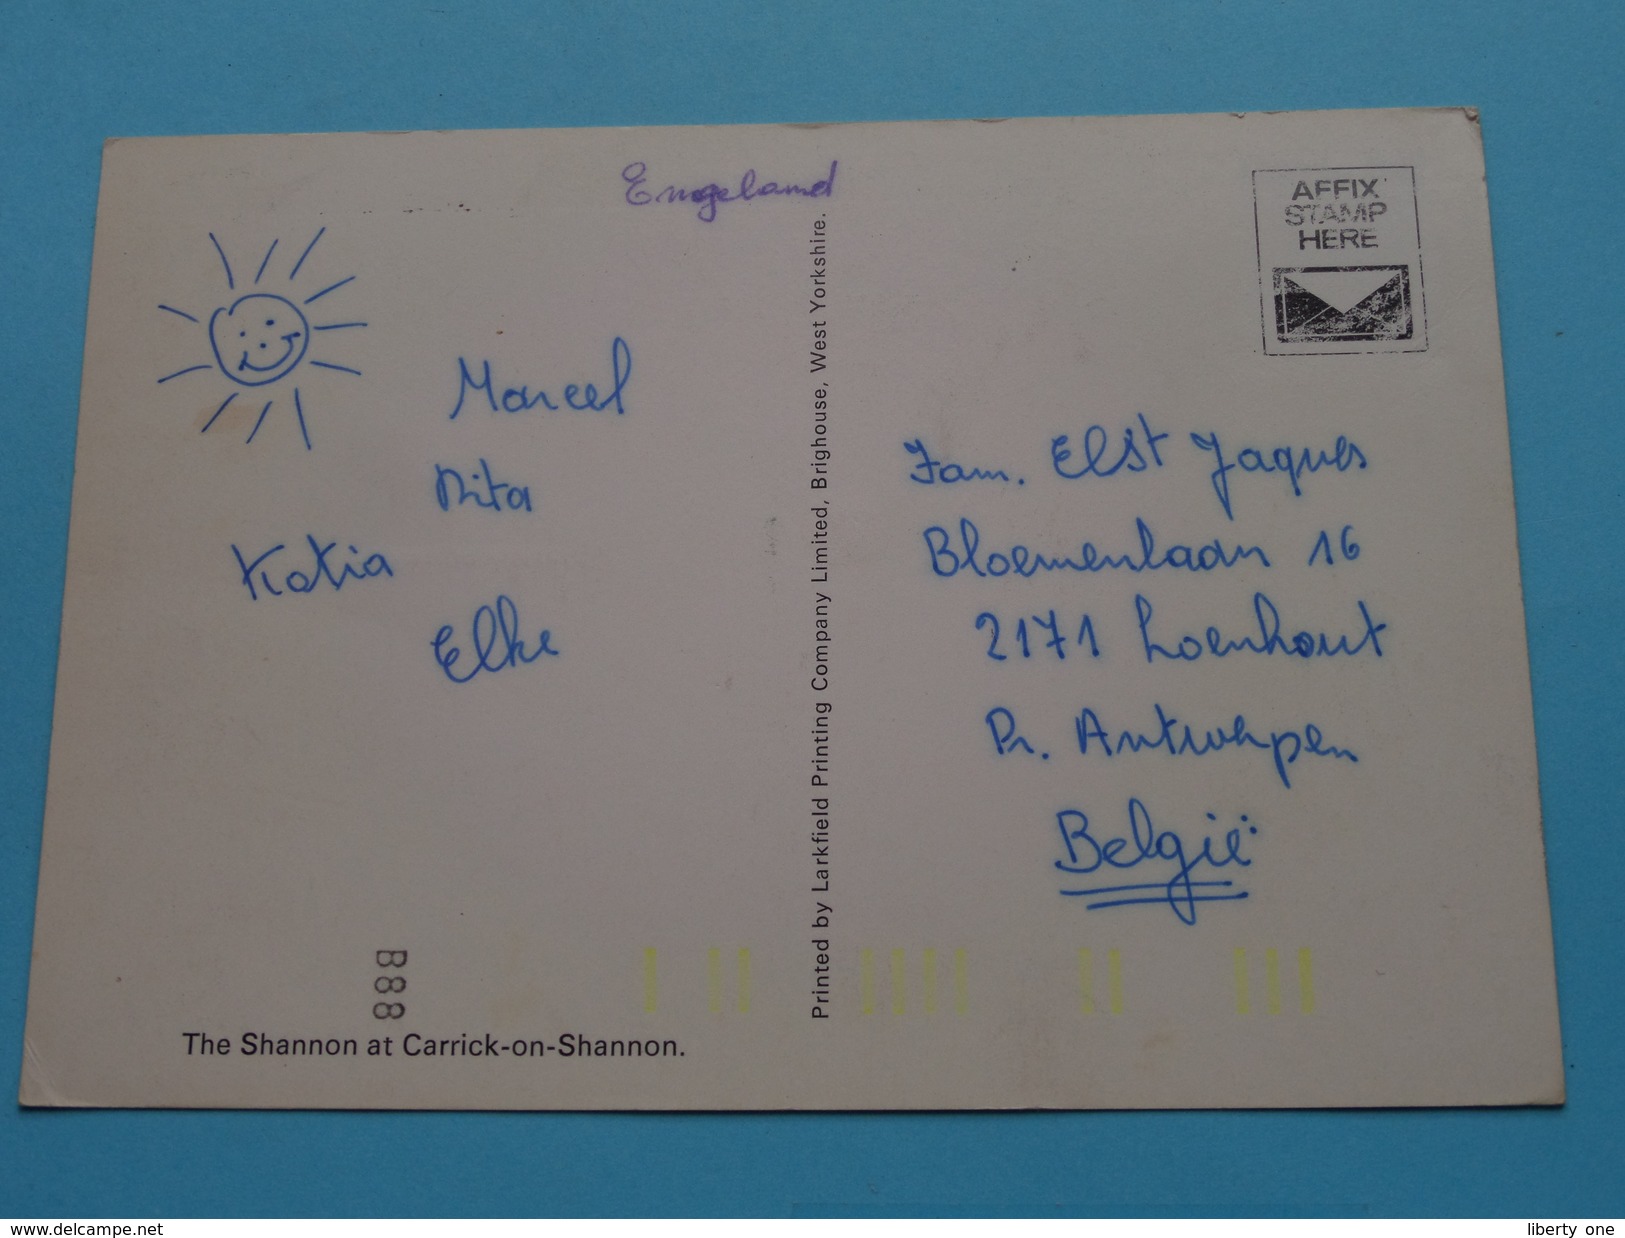 Engeland
AFFIX
STAMP
HERE
Marcel
Rita
Katia
Elke
Printed by Larkfield Printing Company Limited, Brighouse, West Yorkshire.
Fam. Elst Jaques
Bloemenlaan 16
2171 Loenhout
Pr. Antwerpen
België
B88
The Shannon at Carrick-on-Shannon.
www.delcampe.net
liberty one